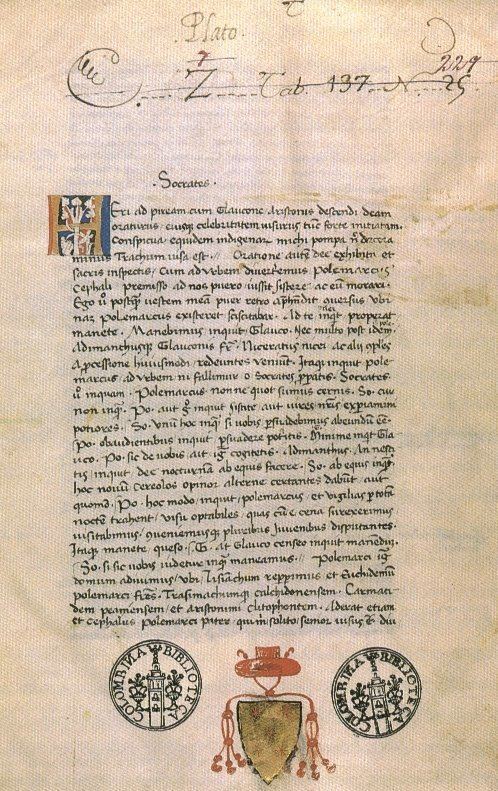 Plato.
7
Z Tab. 137 N 25
229
· Socrates ·
HEri ad piream cum Glaucone Aristonis descendi deam
oraturus · eiusq celebritatem uisurus tūc forte initiatam.
Conspicua equidem indigenar michi pompa n̄ decora
minus Tracium uisa est · Oratione autē dec exhibita et
sacris inspectis, Cum ad urbem diuertemus Polemarcus
Cephali premisso ad nos puero iussit sistere ac eū morari.
Ego ū postq uestem meā puer retro aphendit quersus ubi
nam Polemarcus existeret sciscitabar. Ad te inqt properat
manete. Manebimus inquit Glauco. Nec multo post idem
Adimanchusq Glauconis fr. Niceratus nicei ac alii
a pcessione huiusmodi redeuntes ueniunt. Itaq inquit pole
marcus ad urbem ni fallimur o Socrates pparatis. Socrates
ū inquam. Polemarcus non ne quot sumus cernis. So. cur
non inq. Po. aut g inquit sistite aut uires nr̄as expiamini
potiores. So. unū hoc inq si nobis psuadebimus abeundū eē.
Po. obaudientibus inquit psuadere potitis. Minime inqt Gla
uco. Po. sic de nobis aut ig cogitetis. Adimanthus. An nesci
tis inquit dec nocturna ab equis facere. So. ab equis inq.
hoc nouū cereolos opinor alterne certantes dabūt aut
quomō. Po. hoc modo inquit polemarcus, et uigilias p totā
noctē trahent, uisu optabiles, quas cū e cena surexerimus
uisitabimus, queniemusq pluribus iuuenibus disputantes.
Itaq manete queso. G. at Glauco censeo inquit manendū.
So. si sic nobis uidetur inq maneamus. Polemarci ig
domum adiuimus, ubi Lisiachum repperimus et Euthidemū
polemarci frēs. Trasimachumq calchidonensem. Carmati
dem peamensem, et aristonimi clitophontem. Aderat etiam
et Cephalus Polemarci pater, qui m solito senior uisus ē diu
COLOMBINA BIBLIOTECA
COLOMBINA BIBLIOTECA